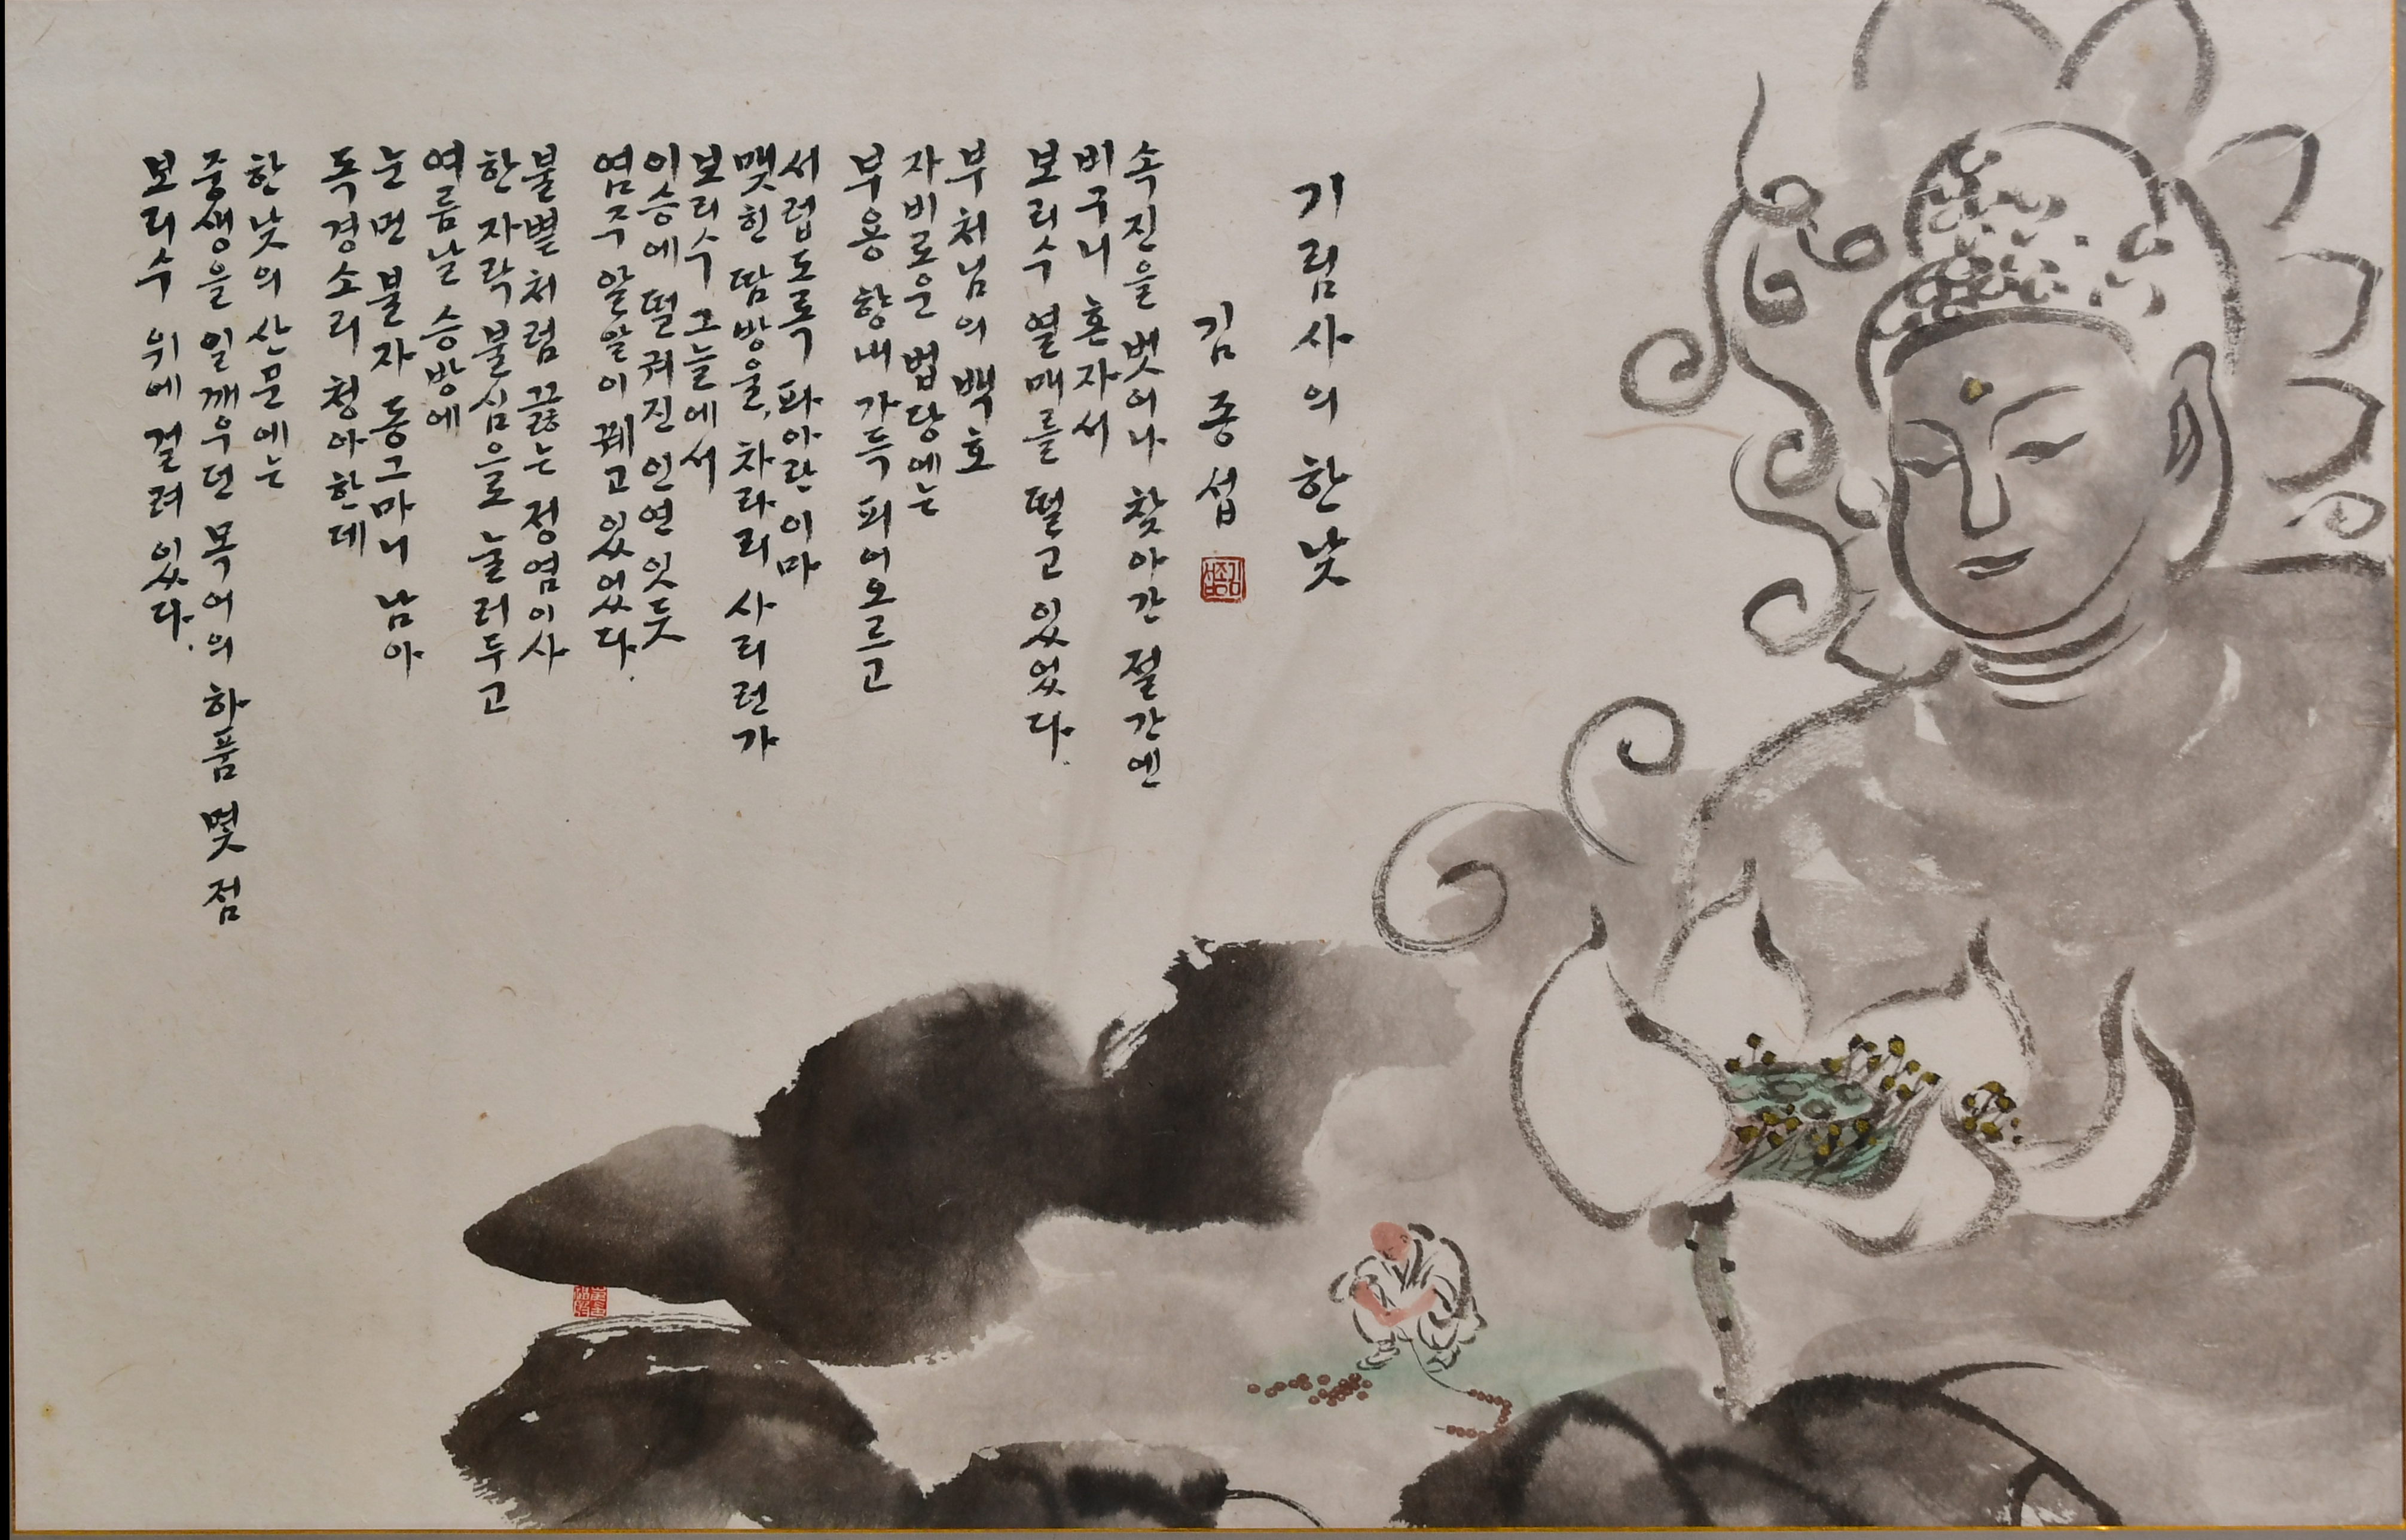 기림사의 한낮
김종섭
김종섭
속진을 벗어나 찾아간 절간엔
비구니 혼자서
보리수 열매를 떨고 있었다.
부처님의 백호
자비로운 법당에는
부용 향내 가득 피어오르고
서럽도록 파아란 이마
맺힌 땀방울, 차라리 사리런가
보리수 그늘에서
이승에 떨궈진 인연 잇듯
염주 알알이 꿰고 있었다.
불뿔처럼 끓는 정염이사
한 자락 불심으로 눌러두고
여름날 승방에
눈 먼 불자 동그마니 남아
독경소리 청아한데
한낮의 산문에는
중생을 일깨우던 목어의 하품 몇 점
보리수 위에 걸려 있다.